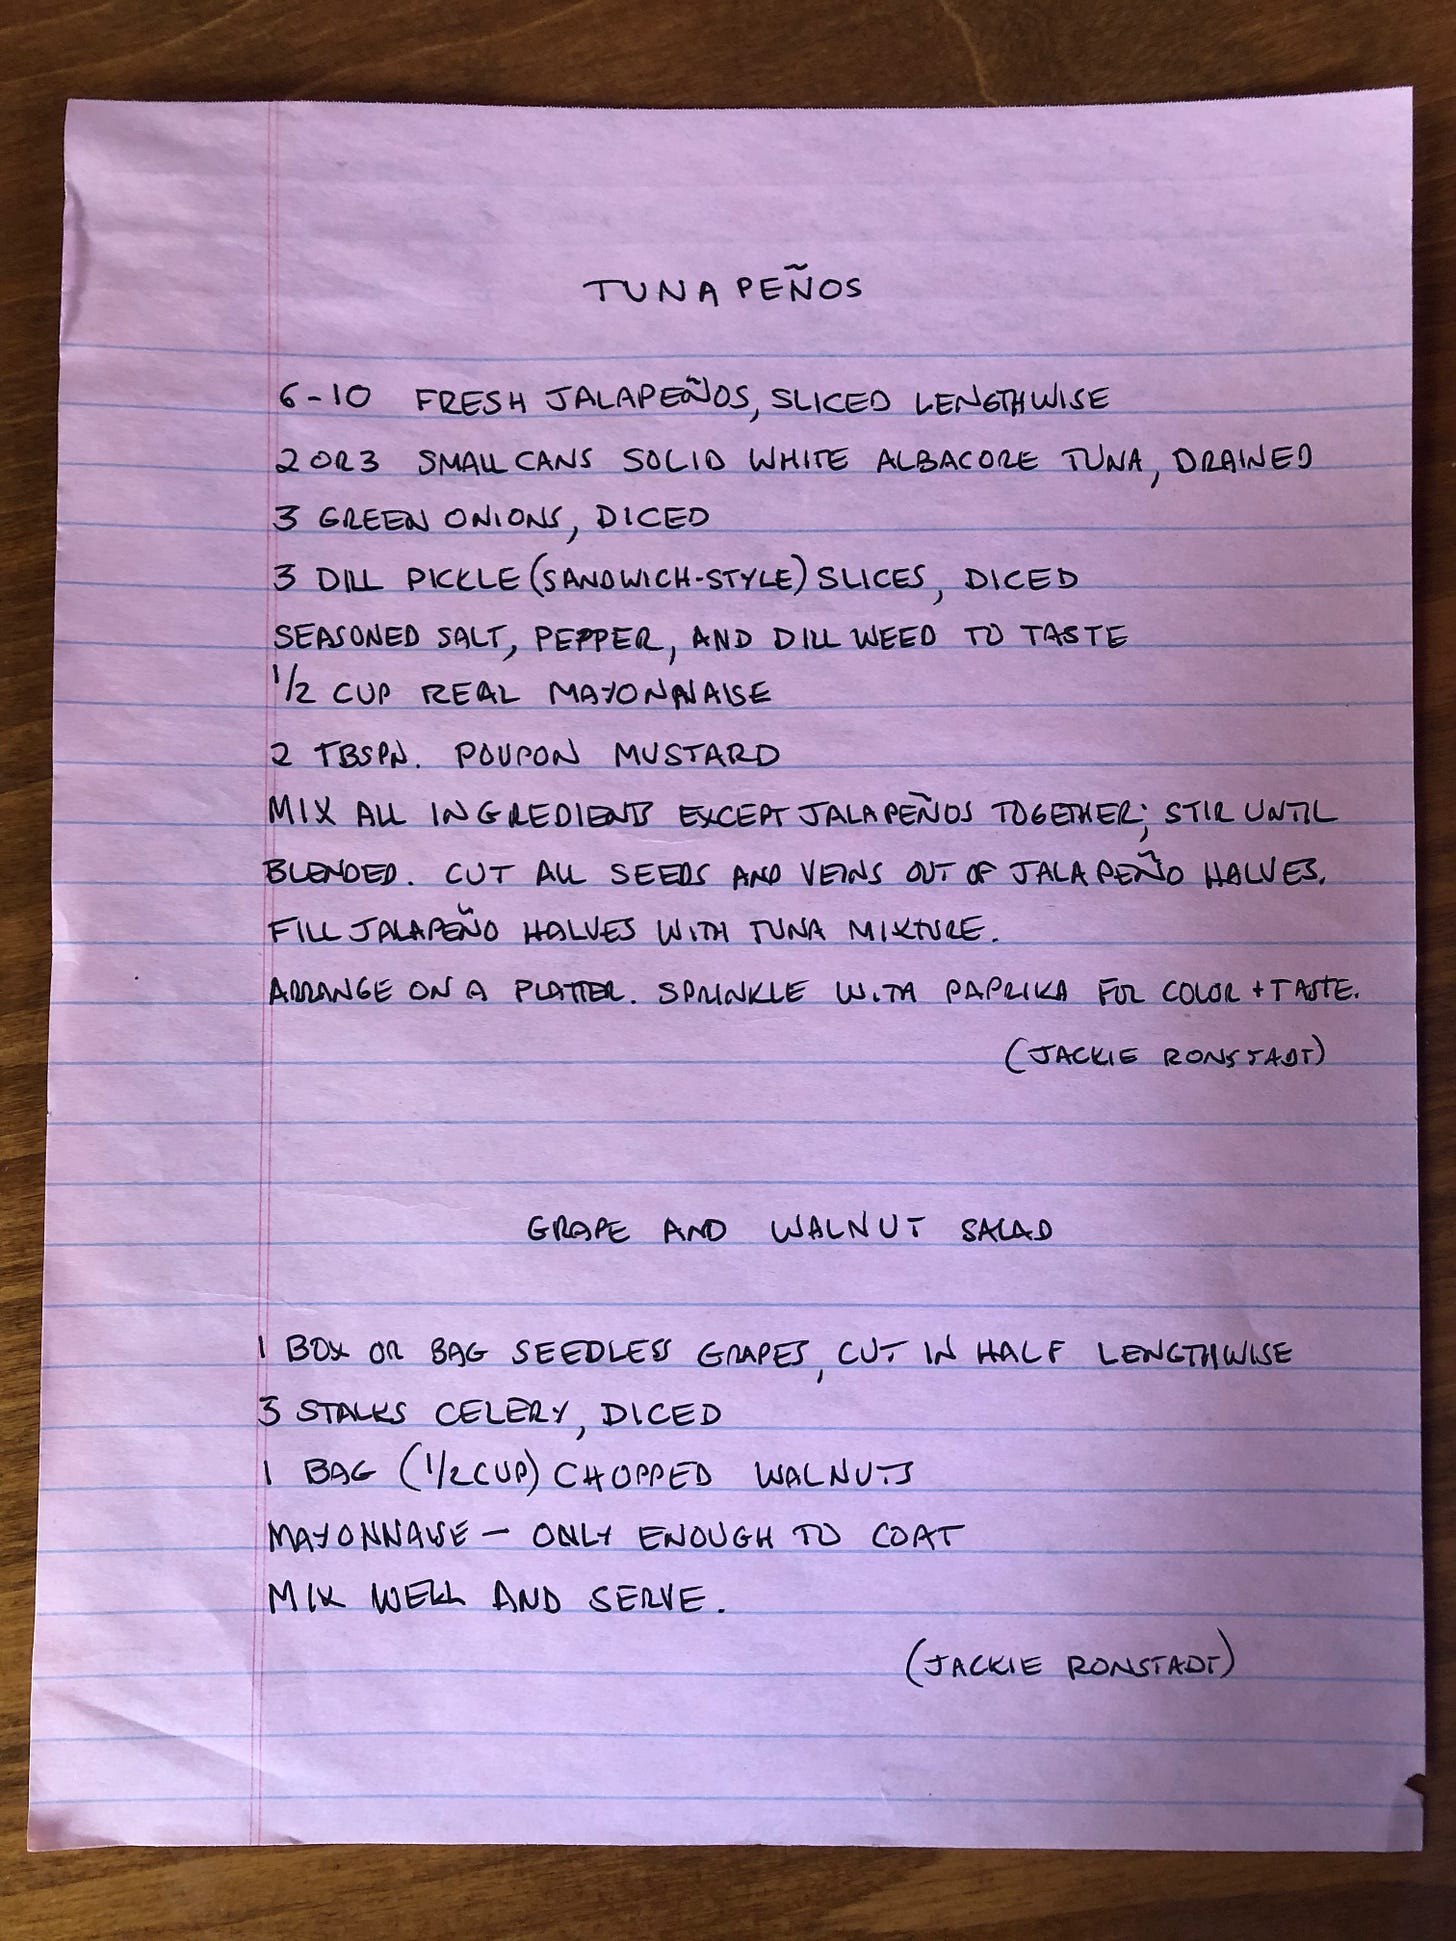 TUNAPEÑOS
6-10 FRESH JALAPEÑOS, SLICED LENGTHWISE
2 OR 3 SMALL CANS SOLID WHITE ALBACORE TUNA, DRAINED
3 GREEN ONIONS, DICED
3 DILL PICKLE (SANDWICH-STYLE) SLICES, DICED
SEASONED SALT, PEPPER, AND DILL WEED TO TASTE
1/2 CUP REAL MAYONNAISE
2 TBSPN. POUPON MUSTARD
MIX ALL INGREDIENTS EXCEPT JALAPEÑOS TOGETHER; STIR UNTIL
BLENDED. CUT ALL SEEDS AND VEINS OUT OF JALAPEÑO HALVES.
FILL JALAPEÑO HALVES WITH TUNA MIXTURE.
ARRANGE ON A PLATTER. SPRINKLE WITH PAPRIKA FOR COLOR + TASTE.
(JACKIE RONSTADT)
GRAPE AND WALNUT SALAD
1 BOX OR BAG SEEDLESS GRAPES, CUT IN HALF LENGTHWISE
3 STALKS CELERY, DICED
1 BAG (1/2 CUP) CHOPPED WALNUTS
MAYONNAISE - ONLY ENOUGH TO COAT
MIX WELL AND SERVE.
(JACKIE RONSTADT)